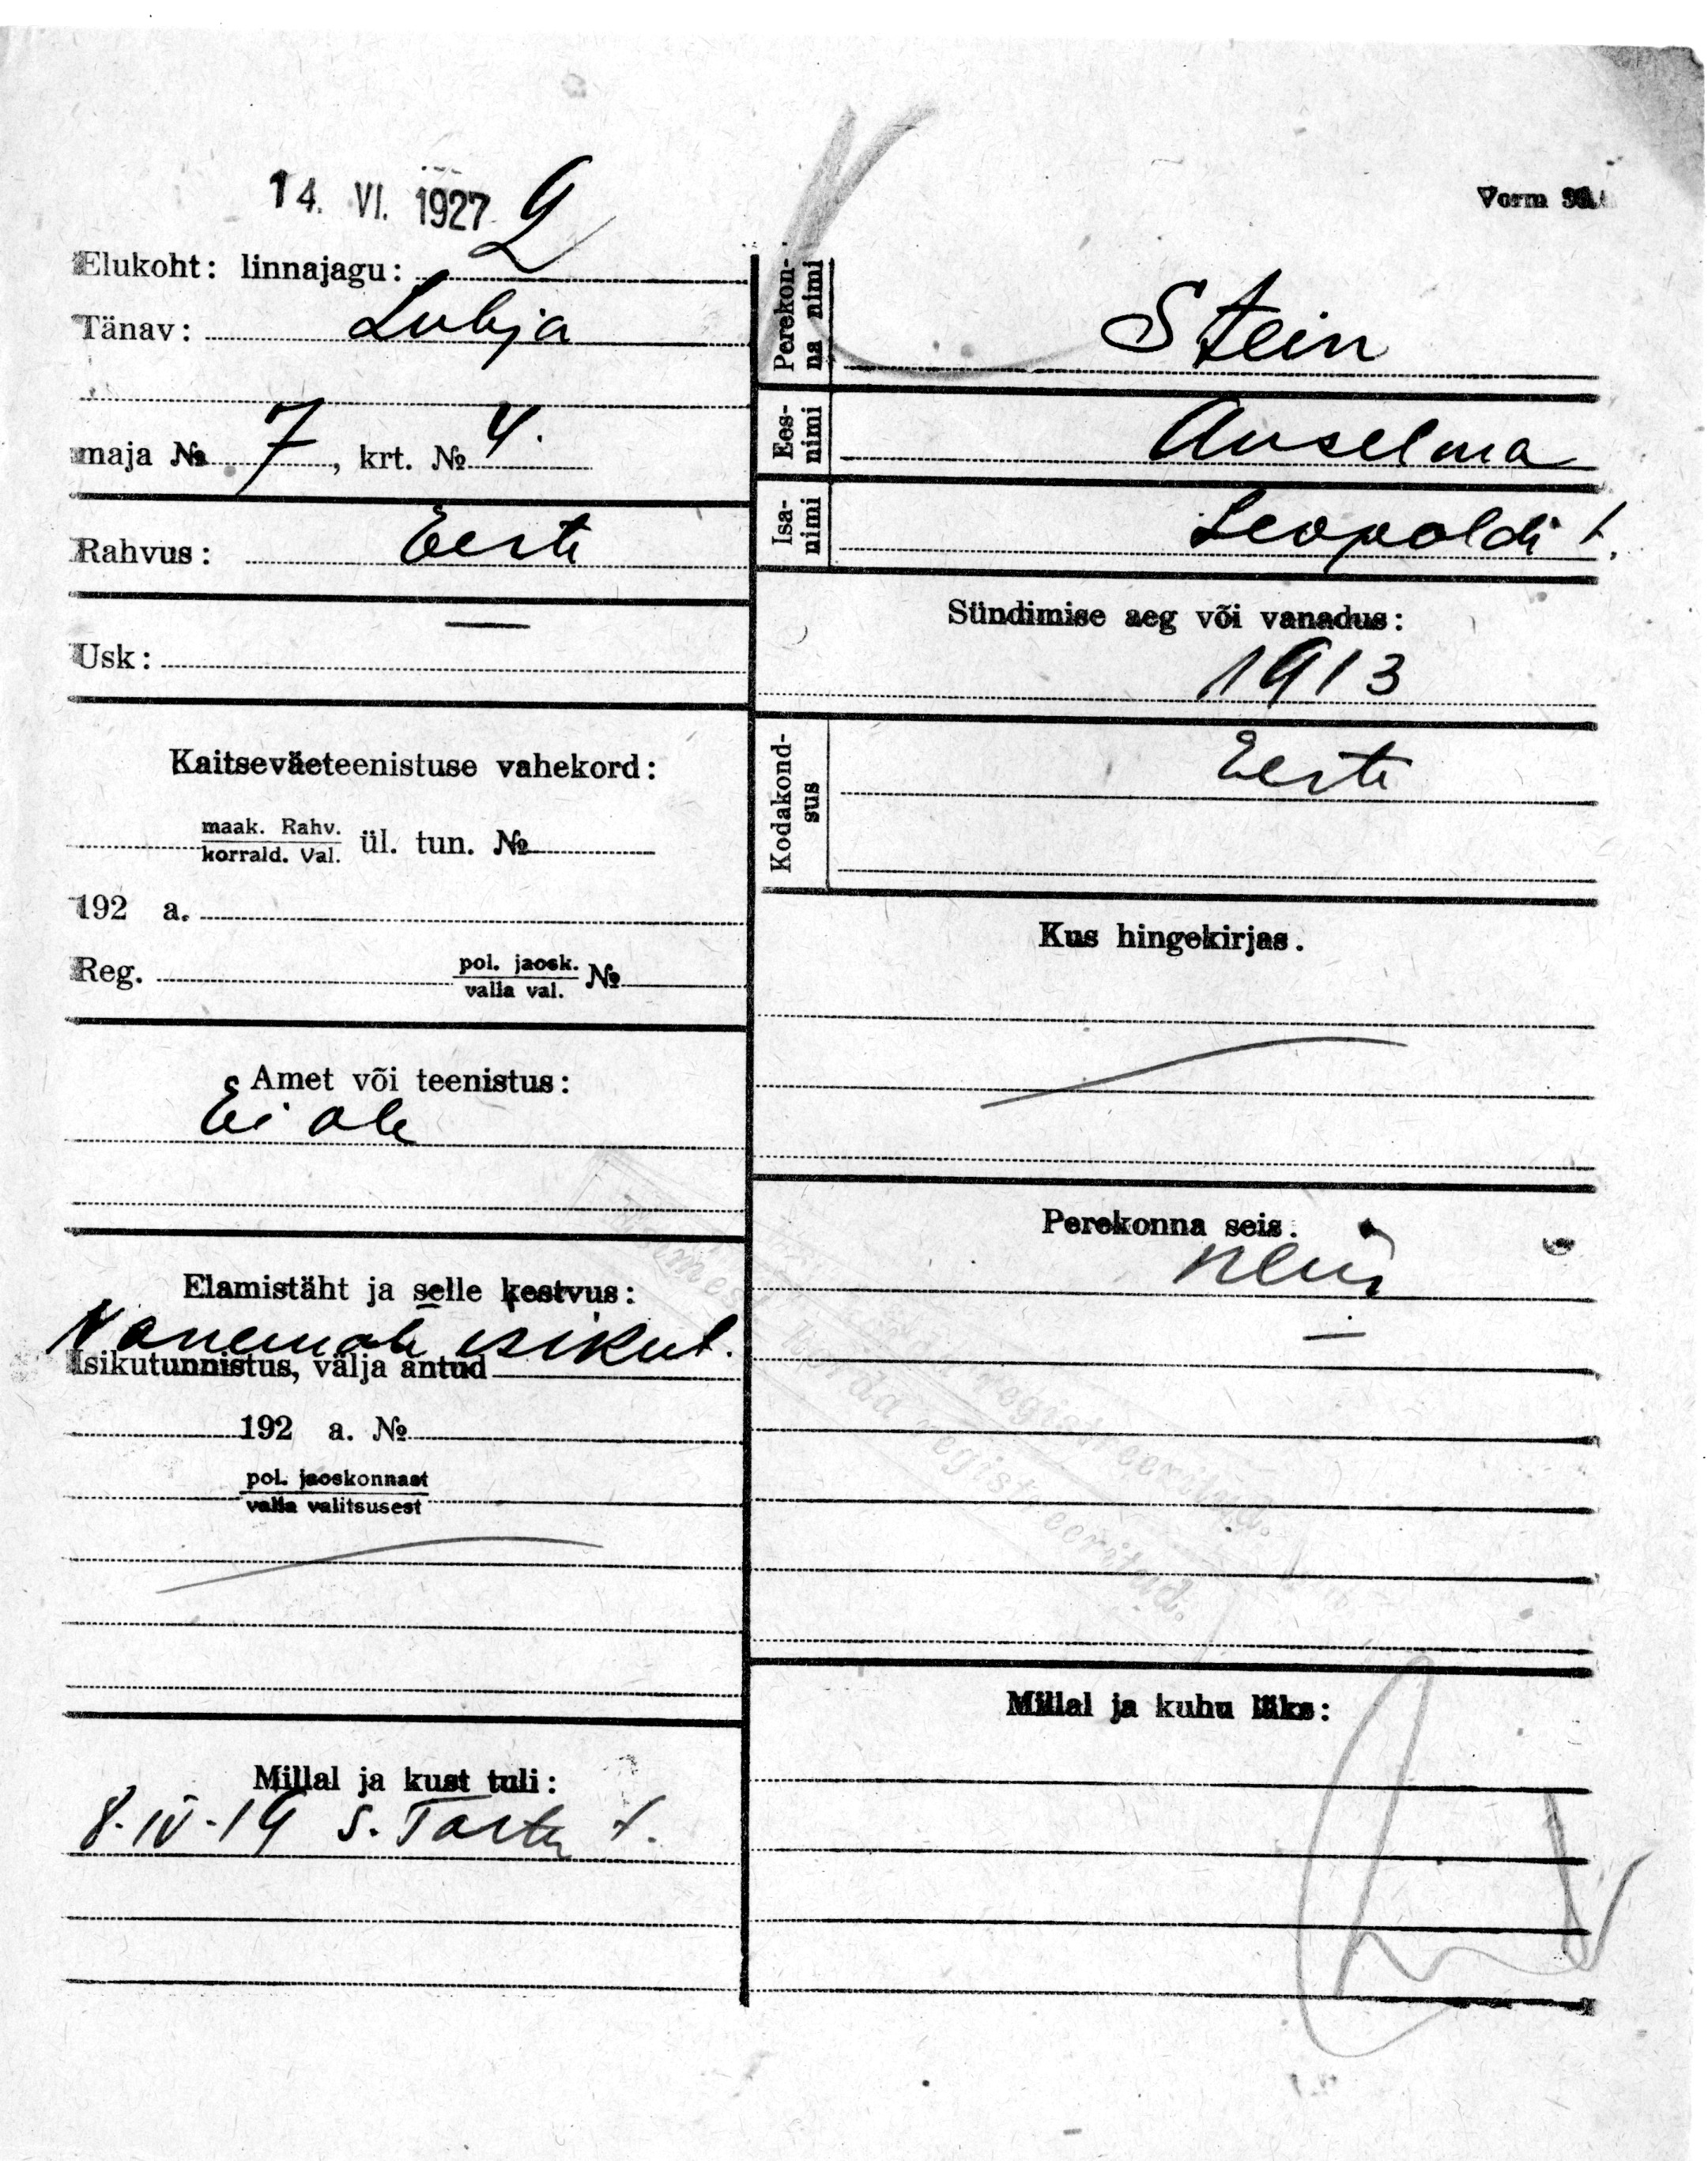 14. VI. 1927
Vorm
Elukoht: linnajagu: 2
Tänav: Lubja
maja № 7, krt. № 4.
Rahvus: Eesti
Usk: —
Kaitseväeteenistuse vahekord:
maak. Rahv.
korrald. Val. ül. tun. №
192 a.
Reg. pol. jaosk.
valla val. №
Amet või teenistus:
Ei ole
Elamistäht ja selle kestvus:
Vanemate isikut.
Isikutunnistus, välja antud
192 a. №
pol. jaoskonnast
valla valitsusest
Millal ja kust tuli:
8.IV-19 s. Tartu t.
Perekon-
na nimi
Stein
Ees-
nimi
Anselma
Isa-
nimi
Leopoldi t.
Sündimise aeg või vanadus:
1913
Kodakond-
sus
Eesti
Kus hingekirjas.
Perekonna seis.
neiu
—
registreeritud.
registreeritud.
Millal ja kuhu läks: